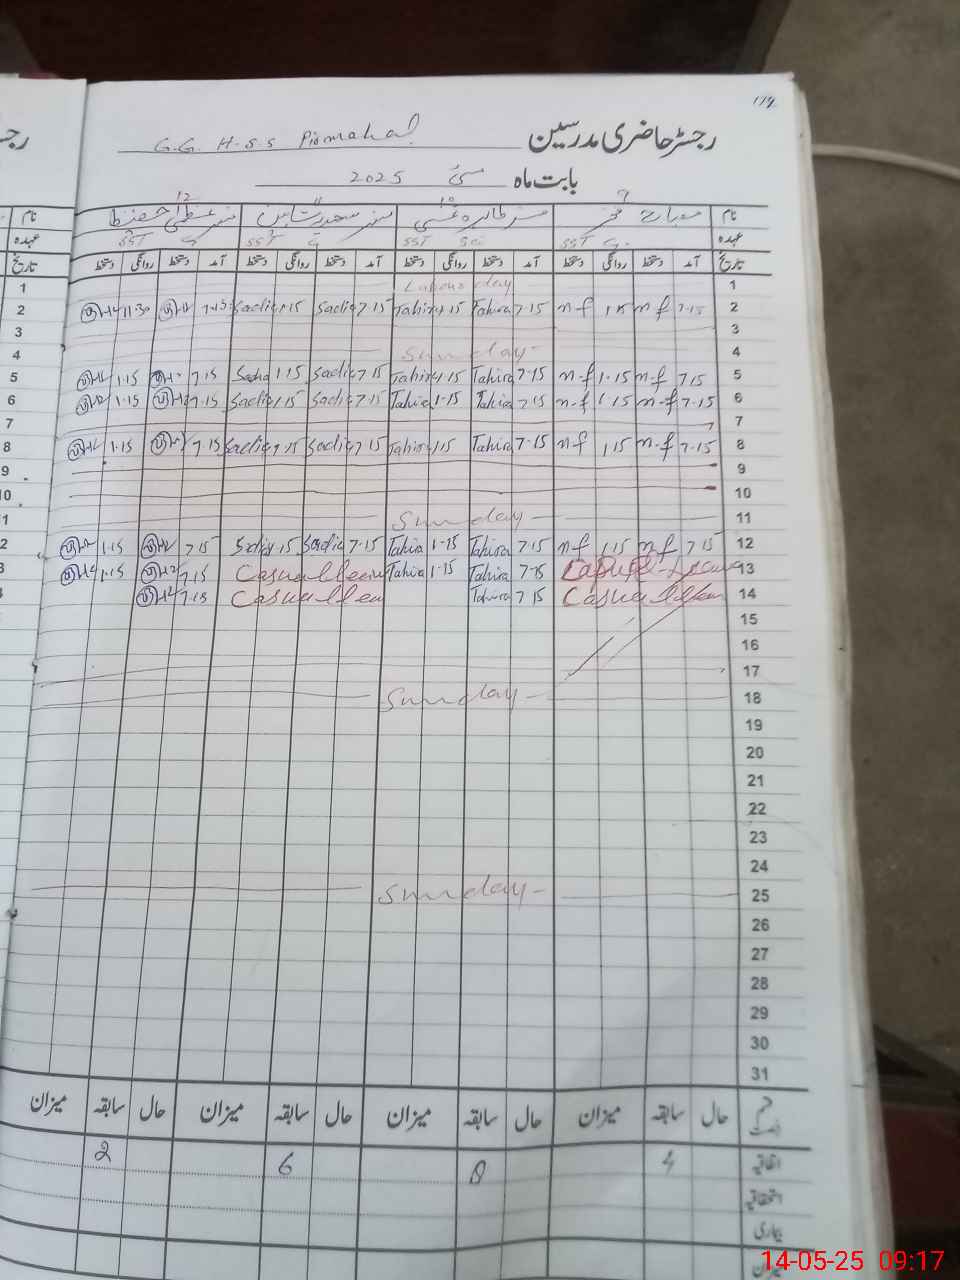 119
رجسٹر حاضری مدرسین G.G. H.S.S Pirmahal
بابت ماہ مئی 2025
9 10 11 12
نام
عہدہ SST G. SST Sci SST G SST G
تاریخ آمد دستخط روانگی دستخط آمد دستخط روانگی دستخط آمد دستخط روانگی دستخط آمد دستخط روانگی دستخط
1 Labour day
2 7.15 m-f 1.15 m-f 7.15 Tahira 1.15 Tahira 7.15 Sadia 1.15 Sadia 7.15 11.30
3
4 Sunday
5 7.15 m-f 1.15 m-f 7.15 Tahira 1.15 Tahira 7.15 Sadia 1.15 Sadia 7.15 1.15
6 7.15 m-f 1.15 m-f 7.15 Tahira 1.15 Tahira 7.15 Sadia 1.15 Sadia 7.15 1.15
7
8 7.15 m-f 1.15 m-f 7.15 Tahira 1.15 Tahira 7.15 Sadia 1.15 Sadia 7.15 1.15
9
10
11 Sunday
12 7.15 m-f 1.15 m-f 7.15 Tahira 1.15 Tahira 7.15 Sadia 1.15 Sadia 7.15 1.15
13 Casual Leave 7.15 Tahira 1.15 Tahira Casual leave 7.15 1.15
14 Casual leave 7.15 Tahira Casual lea 7.15
15
16
17
18 Sunday
19
20
21
22
23
24
25 Sunday
26
27
28
29
30
31
حال سابقہ میزان حال سابقہ میزان حال سابقہ میزان حال سابقہ میزان
اتفاقیہ 4 8 6 2
استحقاقیہ
بیماری
میزان
14-05-25 09:17